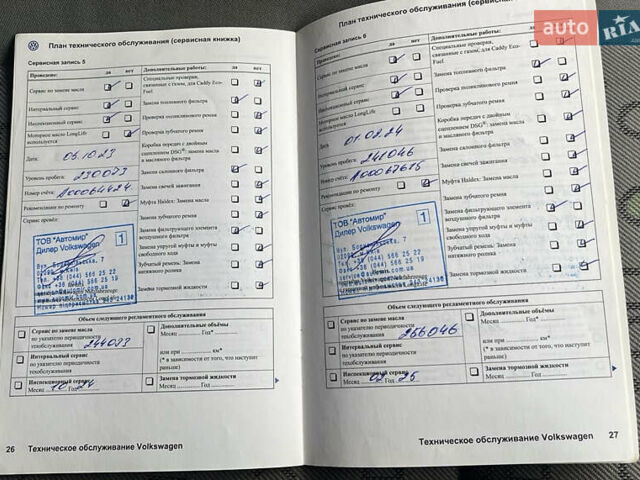 План технического обслуживания (сервисная книжка)
Сервисная запись 5
Проведено: да нет
Дополнительные работы: да нет
Сервис по замене масла
Интервальный сервис
Инспекционный сервис
Моторное масло LongLife
используется
Дата: 05.10.23
Уровень пробега: 230073
Номер счёта: A00064424
Рекомендации по ремонту
Сервис провёл:
Специальные проверки,
связанные с газом, для Caddy Eco-
Fuel
Замена топливного фильтра
Проверка поликлинового ремня
Проверка зубчатого ремня
Коробка передач с двойным
сцеплением DSG®: замена масла
и масляного фильтра
Замена салонного фильтра
Замена свечей зажигания
Муфта Haldex: Замена масла
Замена зубчатого ремня
Замена фильтрующего элемента
воздушного фильтра
Замена упругой муфты и муфты
свободного хода
Зубчатый ремень: Замена
натяжного ролика
Замена тормозной жидкости
ТОВ "Автомир"
Дилер Volkswagen
1
Объем следующего регламентного обслуживания
Сервис по замене масла
по указателю периодичности
техобслуживания
Интервальный сервис
по указателю периодичности
техобслуживания
Инспекционный сервис
Месяц 10 Год 24
Дополнительные объёмы
Месяц Год*
или при км*
(* в зависимости от того, что наступит
раньше)
Замена тормозной жидкости
Месяц Год
26 Техническое обслуживание Volkswagen
auto RIA
План технического обслуживания (сервисная
Сервисная запись 6
Проведено: да нет
Дополнительные работы:
Сервис по замене масла
Интервальный сервис
Инспекционный сервис
Моторное масло LongLife
используется
Дата: 01.02.24
Уровень пробега: 241046
Номер счёта: A00067675
Рекомендации по ремонту
Сервис провёл:
Специальные проверки,
связанные с газом, для Caddy Eco-
Fuel
Замена топливного фильтра
Проверка поликлинового ремня
Проверка зубчатого ремня
Коробка передач с двойным
сцеплением DSG®: замена масла
и масляного фильтра
Замена салонного фильтра
Замена свечей зажигания
Муфта Haldex: Замена масла
Замена зубчатого ремня
Замена фильтрующего элемента
воздушного фильтра
Замена упругой муфты и муфты
свободного хода
Зубчатый ремень: Замена
натяжного ролика
Замена тормозной жидкости
ТОВ "Автомир"
Дилер Volkswagen
1
Объем следующего регламентного обслуживания
Сервис по замене масла
по указателю периодичности
техобслуживания 256046
Интервальный сервис
по указателю периодичности
техобслуживания
Инспекционный сервис
Месяц 02 Год 25
Дополнительные объёмы
Месяц Год*
или при км*
(* в зависимости от того, что наступит
раньше)
Замена тормозной жидкости
Месяц Год
Техническое обслуживание Volkswagen 27